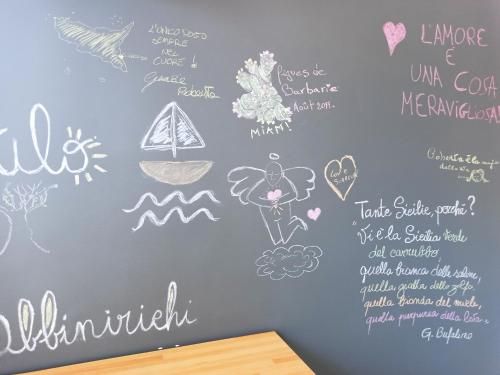 L'UNICO LUOGO
SEMPRE
NEL
CUORE!
Grazie
Roberta
Figues de
Barbarie
Août 2017.
MIAM!
L'AMORE
É
UNA COSA
MERAVIGLIOSA!
tulo
LOVE
Roberta è la
"Tante Sicilie, perché?
Vi è la Sicilia verde
del carrubbo,
quella bianca delle saline,
quella gialla dello zolfo
quella bionda del miele,
quella purpurea della lava."
G. Bufalino
abbinirichi